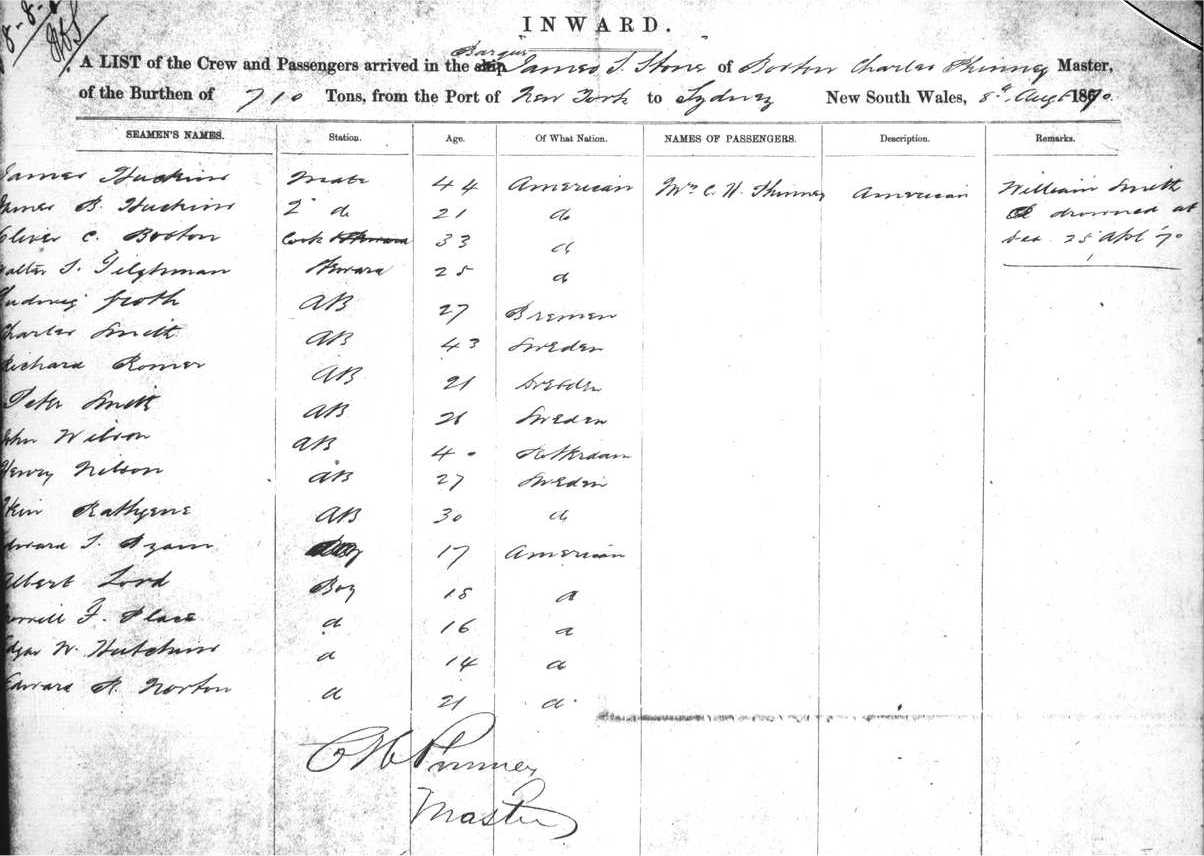 8-8-
INWARD.
A LIST of the Crew and Passengers arrived in the ship Barque James S. Stone of Boston Charles Phinney Master,
of the Burthen of 710 Tons, from the Port of New York to Sydney New South Wales, 8th Augt 1870.
SEAMEN'S NAMES. Station. Age. Of What Nation. NAMES OF PASSENGERS. Description. Remarks.
James Huckins Mate 44 American Mrs C. H. Phinney American William Smith
James B. Huckins 2d do 21 do drowned at
Oliver C. Boston Cook 33 do Sea 25 Apl 70
Walter S. Tilghman Steward 25 do
Ludwig Groth AB 27 Bremen
Charles Smith AB 43 Sweden
Richard Romer AB 21
Peter Smith AB 26 Sweden
John Wilson AB 40 Rotterdam
Henry Nilson AB 27 Sweden
AB 30 do
Edward S. 17 American
Albert Lord Boy 18 do
F. Place do 16 do
Edgar W. Hutchins do 14 do
Edward A. Norton do 21 do
C H Phinney
Master